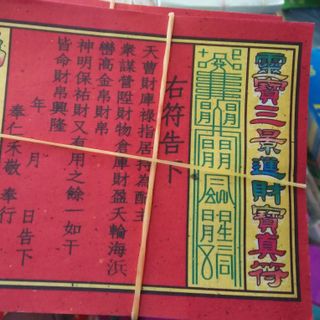 靈寶三景進財寶真符
右符告下
天曹財庫祿指居持為配主
衆謀營陞財物倉庫財盈天輪海浜
巒高金帛財帛
神明保祐財又有用之餘一如干
皆命財帛興隆
年 月 日告下
奉行